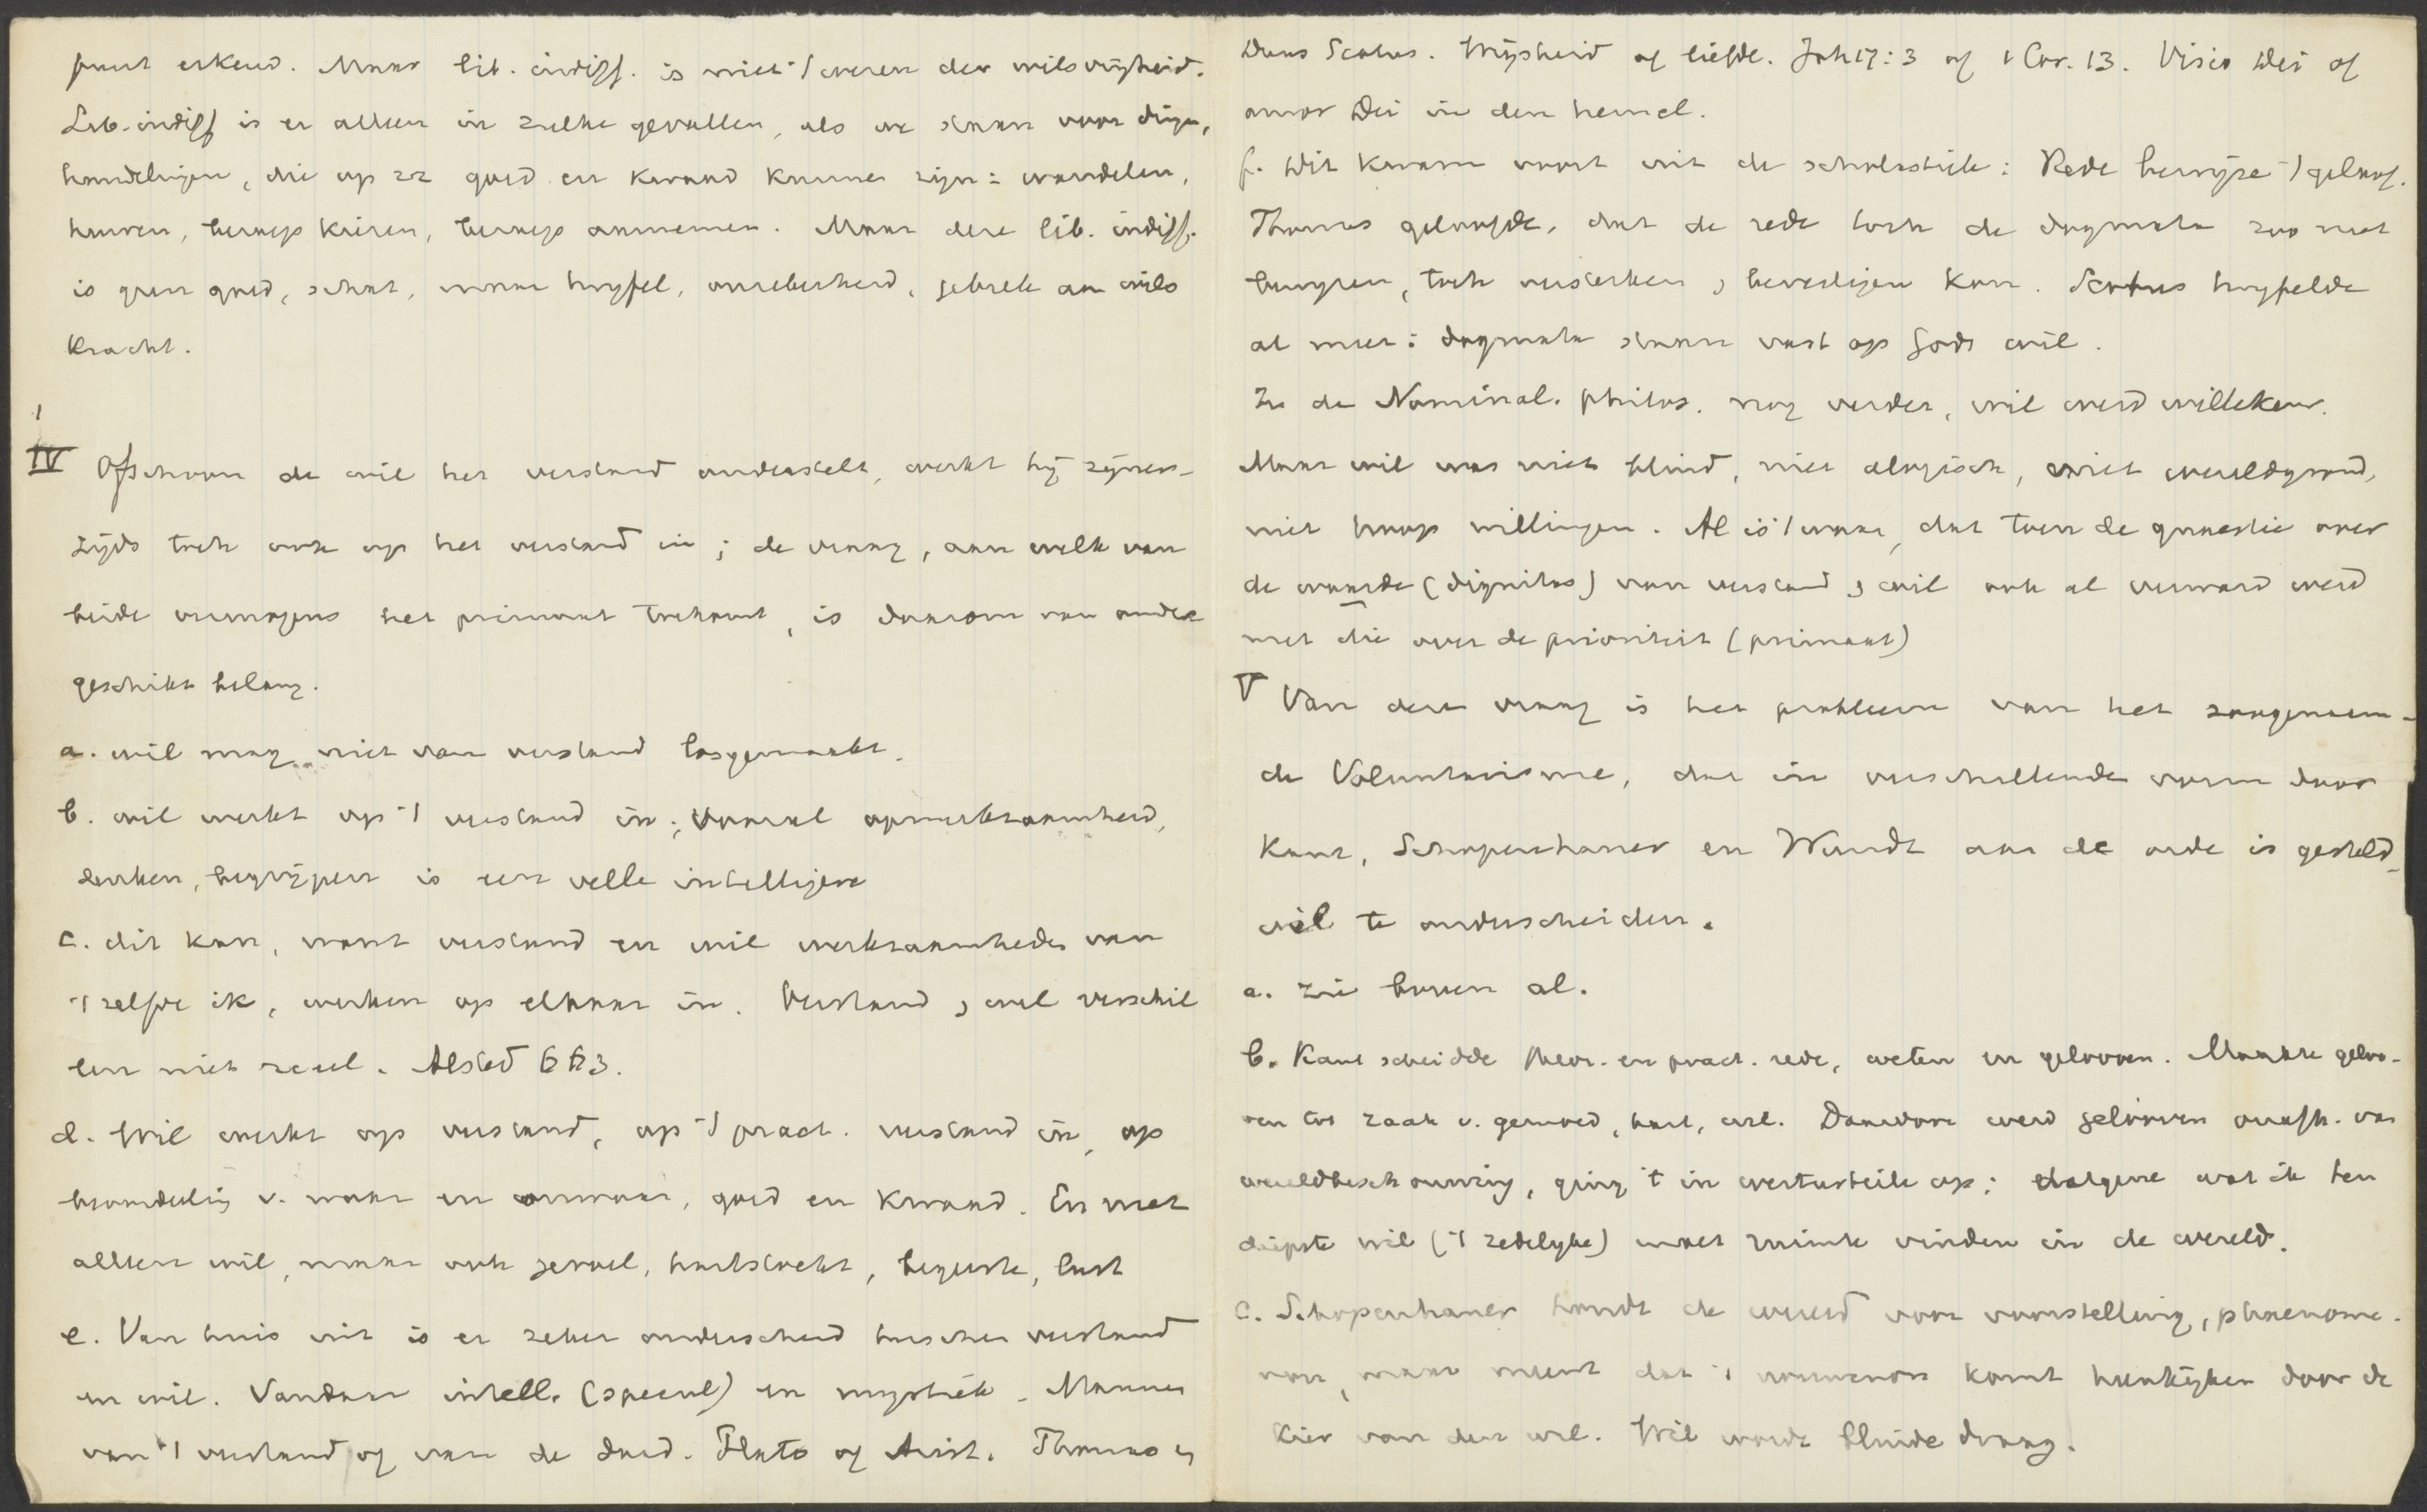 punt erkend. Maar lib. indiff. is niet 't wezen der wilsvrijheid.
Lib. indiff is er alleen in zulke gevallen, als we staan voor dingen,
handelingen, die op zz goed en kwaad kunnen zijn: wandelen,
huwen, beroep kiezen, beroep aannemen. Maar deze lib. indiff.
is geen goed, schat, maar twyfel, onzekerheid, gebrek aan wils
kracht.
IV Ofschoon de wil het verstand onderstelt, werkt hij zijner-
zijds toch ook op het verstand in; de vraag, aan welk van
beide vermogens het primaat toekomt, is daarom van onder
geschikt belang.
a. wil mag niet van verstand losgemaakt.
b. wil werkt op 't verstand in; vooral opmerkzaamheid,
denken, begrijpen is een velle intelligere
c. dit kan, want verstand en wil werkzaamheden van
't zelfde ik, werken op elkaar in. Verstand en wil verschil
len niet reeel. Alsted 663.
d. Wil werkt op verstand, op 't pract. verstand in, op
beoordeling v. waar en onwaar, goed en kwaad. En niet
alleen wil, maar ook gevoel, hartstocht, begeerte, lust
e. Van huis uit is er zeker onderscheid tusschen verstand
en wil. Vandaar intell. (specul) en mystiek. Mannen
van 't verstand of van de daad. Plato of Arist. Thomas en
Duns Scotus. Wijsheid of liefde. Joh 17:3 of 1 Cor. 13. Visio Dei of
amor Dei in den hemel.
f. Dit kwam voort uit de scholastiek: Rede bewijze 't geloof.
Thomas geloofde, dat de rede toch de dogmata zoo niet
bewyzen, toch versterken en bevestigen kon. Scotus twyfelde
al meer: dogmata staan vast op Gods wil.
In de Nominal. philos. nog verder, wil werd willekeur.
Maar wil was niet blind, niet alogisch, niet wereldgrond,
niet hoop willingen. Al is 't waar, dat toen de quaestie over
de waarde (dignitas) van verstand en wil ook al verward werd
met die over de prioriteit (primaat)
V Van deze vraag is het probleem van het zoogenaam-
de Voluntarisme, dat in verschillende vorm door
Kant, Schopenhauer en Wundt aan de orde is gesteld,
wel te onderscheiden.
a. zie boven al.
b. Kant scheidde theor. en pract. rede, weten en gelooven. Maakte geloo-
ven tot zaak v. gemoed, hart, wil. Daardoor werd gelooven onafh. van
wereldbeschouwing, ging 't in werturteile op; datgene wat ik ten
diepste wil ('t zedelyke) moet ruimte vinden in de wereld.
c. Schopenhauer houdt de wereld voor voorstelling, phaenome-
non, maar meent dat 't noumenon komt heenkijken door de
kier van den wil. Wil wordt blinde drang.